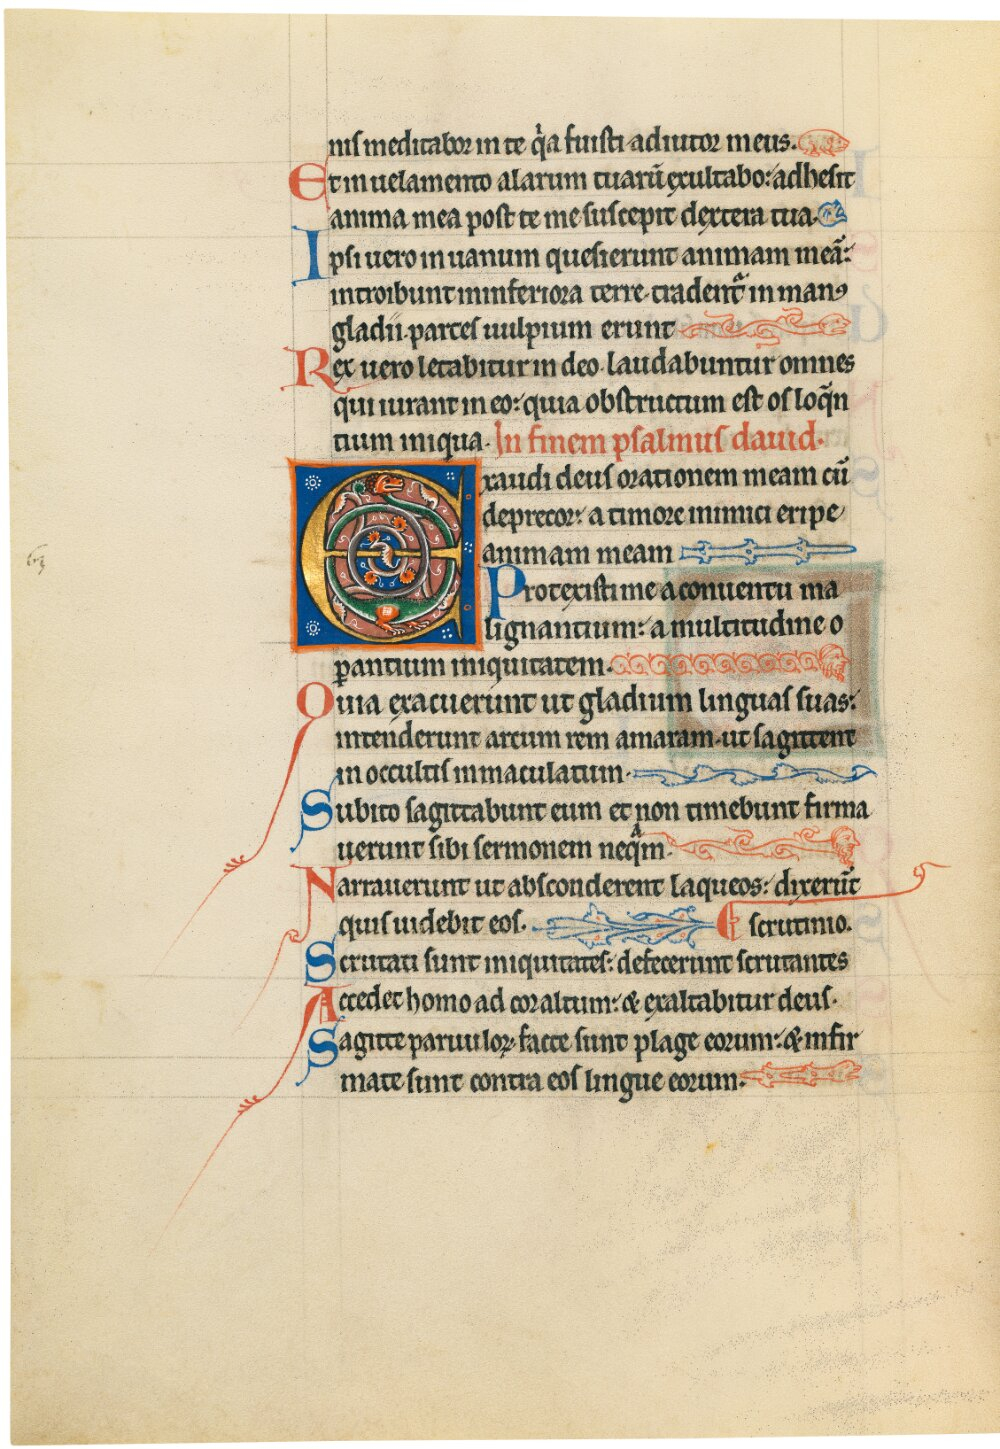 nis meditabor in te q̇a fuisti adiutor meus.
Et in uelamento alarum tuarū exultabo: adhesit
anima mea post te me suscepit dextera tua.
Ipsi uero in uanum quesierunt animam meā:
introibunt in inferiora terre. tradent᷑ in man᷒
gladii. partes uulpium erunt
Rex uero letabitur in deo. laudabuntur omnes
qui iurant in eo: quia obstructum est os loq̄n
tium iniqua. In finem psalmus dauid.
Exaudi deus orationem meam cū
deprecor: a timore inimici eripe
animam meam
Protexisti me a conuentu ma
lignantium: a multitudine o
ꝑantium iniquitatem.
Quia exacuerunt ut gladium linguas suas:
intenderunt arcum rem amaram. ut sagittent
in occultis inmaculatum.
Subito sagittabunt eum et non timebunt firma
uerunt sibi sermonem neqͣm.
Narrauerunt ut absconderent laqueos: dixerūt
quis uidebit eos. scrutinio.
Scrutati sunt iniquitates: defecerunt scrutantes
Accedet homo ad cor altum: & exaltabitur deus.
Sagitte paruuloꝝ facte sunt plage eorum: & infir
mate sunt contra eos lingue eorum.